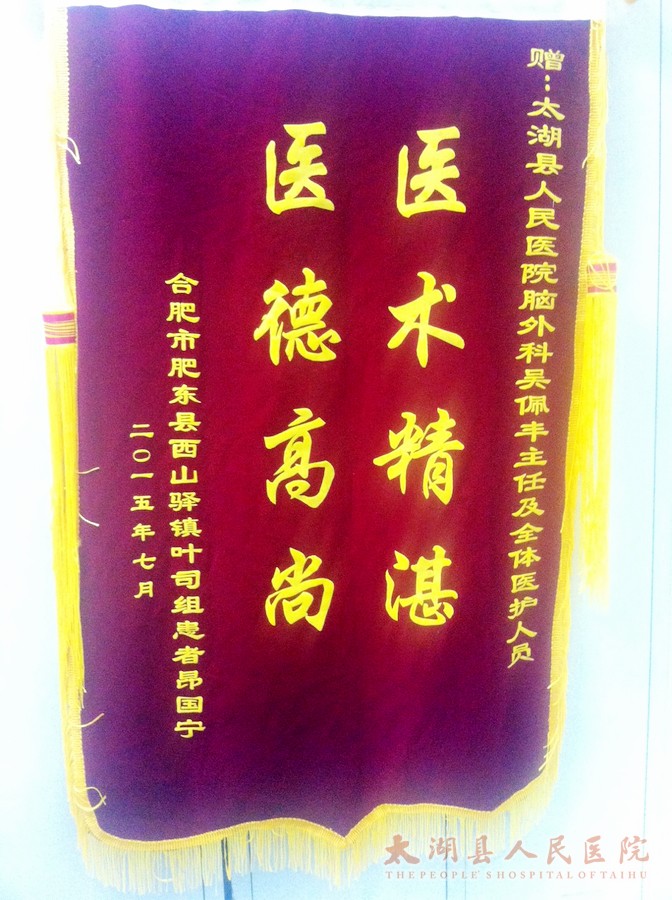 赠:太湖县人民医院脑外科吴佩丰主任及全体医护人员
医术精湛
医德高尚
合肥市肥东县西山驿镇叶司组患者昂国宁
二〇一五年七月
太湖县人民医院
THE PEOPLE'S HOSPITAL OF TAIHU